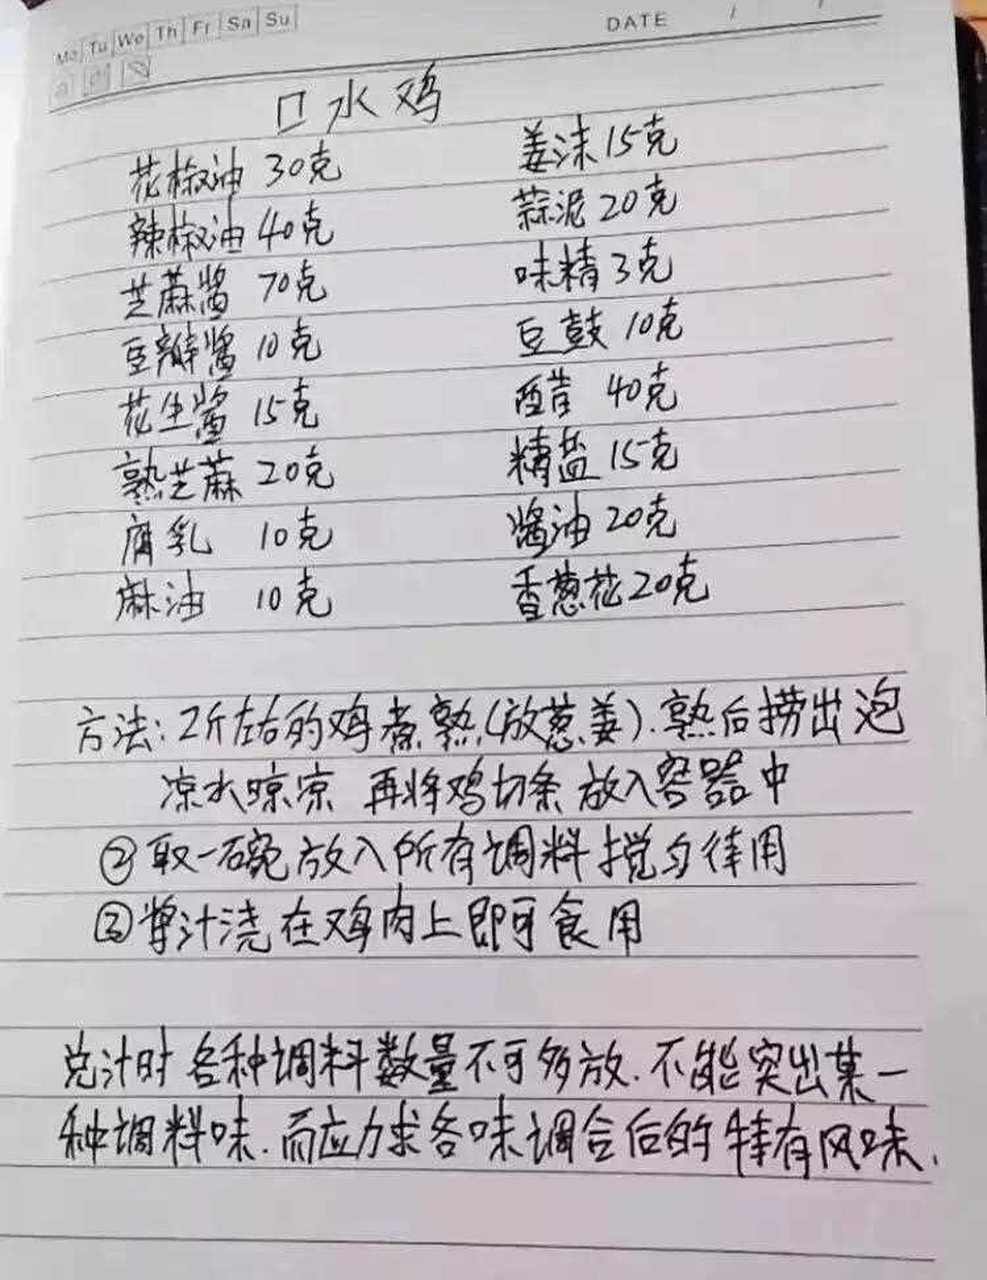 Mo Tu We Th Fr Sa Su
DATE / /
口水鸡
花椒油 30克 姜沫 15克
辣椒油 40克 蒜泥 20克
芝蔴酱 70克 味精 3克
豆瓣酱 10克 豆鼓 10克
花生酱 15克 醋 40克
熟芝蔴 20克 精盐 15克
腐乳 10克 酱油 20克
麻油 10克 香葱花 20克
方法：2斤左右的鸡煮熟(放葱姜).熟后捞出泡
凉水晾凉 再将鸡切条 放入容器中
②取一碗放入所有调料搅匀待用
③将汁浇在鸡肉上即可食用
兑汁时各种调料数量不可多放.不能突出某一
种调料味.而应力求各味调合后的特有风味.